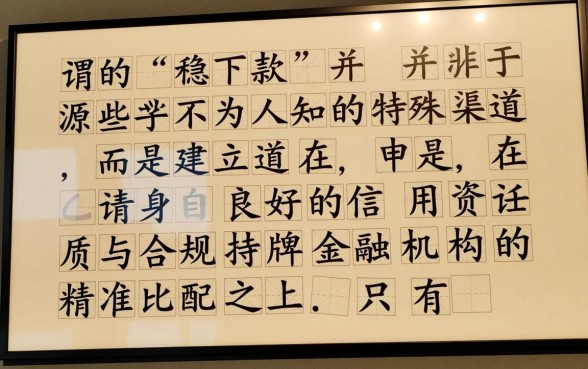 谓的“稳下款”并 并非于
源些学不为人知的特殊渠道
，而是建立道在，申是，在
请身自良好的信 用资迁
质与合规持牌金融机构的
精准比配之上．只有